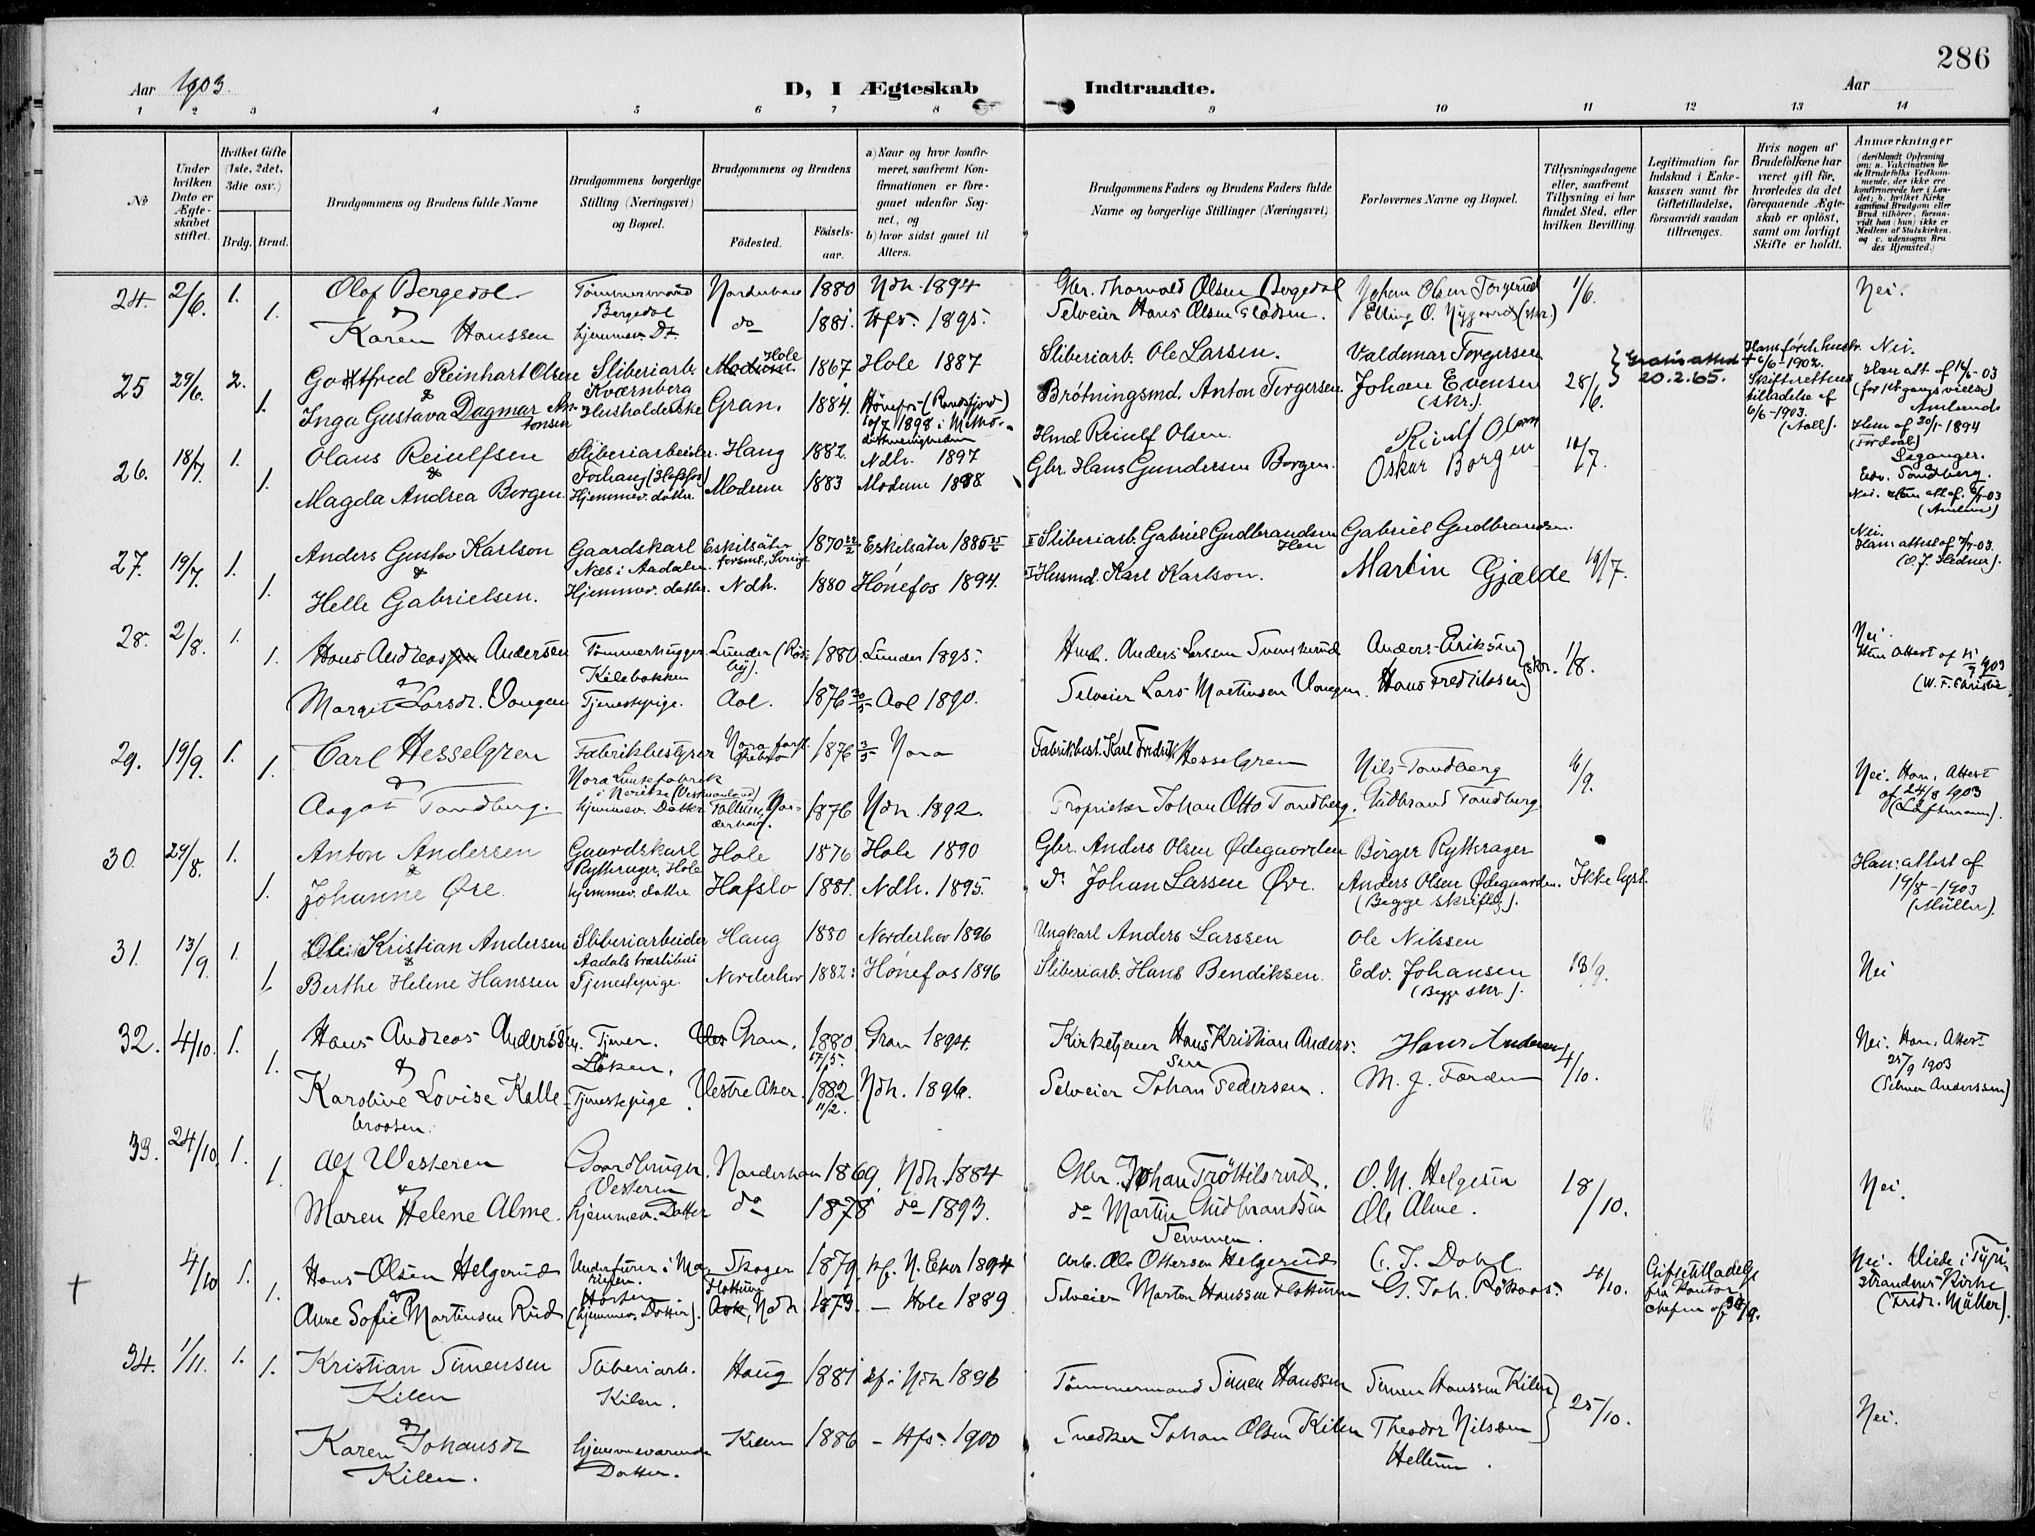 286
Aar 1903.
D, I Ægteskab Indtraadte.
Aar
1 2 3 4 5 6 7 8 9 10 11 12 13 14
No
Under hvilken Dato er Ægteskabet stiftet.
Hvilket Gifte (1ste, 2det, 3die osv.)
Brdg. Brud.
Brudgommens og Brudens fulde Navne
Brudgommens borgerlige Stilling (Næringsvei) og Bopæl.
Brudgommens og Brudens
Fødested. Fødselsaar.
a) Naar og hvor konfirmeret, saafremt Konfirmationen er foregaaet udenfor Sognet, og
b) hvor sidst gaaet til Alters.
Brudgommens Faders og Brudens Faders fulde Navne og borgerlige Stillinger (Næringsvei)
Forlovernes Navne og Bopæl.
Tillysningsdagene eller, saafremt Tillysning ei har fundet Sted, efter hvilken Bevilling.
Legitimation for Indskud i Enkekassen samt for Giftetilladelse, forsaavidt saadan tiltrænges.
Hvis nogen af Brudefolkene har været gift før, hvorledes da det foregaaende Ægteskab er opløst, samt om lovligt Skifte er holdt.
Anmærkninger
24. 2/6. 1. Olaf Bergedal Tømmermand Bergedal Norderhov 1880 Ndh. 1894 Gbr. Thorvald Olsen Bergedal Johan Olsen Torgerud 1/6. Nei.
1. & Karen Hanssen hjemmev. Dt. do 1881. Hfs. 1895. Selveier Hans Olsen Elling O. Nygaard (skr.)
25 29/6. 2. Gottfred Reinhart Olsen Sliberiarb. Kværnberg Hole 1867 Hole 1887 Sliberiarb. Ole Larsen. Valdemar Torgersen 28/6. Gratis attest 20.2.65. Skifterettens tilladelse af 6/6-1903. Nei.
1. & Inga Gustava Dagmar Antonsen Husholderske Gran. 1884. Hønefos (Randsfjord) 10/7 1898 i Brøtningsmd. Anton Torgersen Johan Evensen (skr.)
26. 18/7. 1. Olaus Reiulfsen Sliberiarbeider Haug 1882 Ndh. 1897 Hmd Reiulf Olsen. Reiulf Olsen 12/7.
1. & Magda Andrea Borgen. Hjemmev. datter. Modum 1883 Modum 1898 Gbr. Hans Gundersen Borgen. Oskar Borgen
27. 19/7. 1. Anders Gustav Karlson Gaardskarl Næs i Aadalen. Eskilsäter 1870 22/2 Eskilsäter 1885 Sliberiarb. Gabriel Gudbrandsen Hen Gabriel Gudbrandsen. 19/7. Nei.
1. & Helle Gabrielsen. Hjemmev. datter. Ndh. 1880 Hønefos 1894. Husmd. Karl Karlson. Martin Gjælde
28. 2/8. 1. Hans Andreas Andersen Tømmerhugger Kilebakken Lunder 1880. Lunder 1895. Hmd. Anders Larsen Svenskerud Anders Eriksen 1/8. Nei.
1. & Margit Larsdr. Vangen Tjenestepige. Aal. 1876 20/5 Aal 1890. Selveier Lars Martinsen Vangen. Hans Fredriksen skr. (W. F. Christie
29. 19/9. 1. Carl Hesselgren Fabrikbestyrer 1876 3/5 Nora Fabrikbest. Karl Fredrik Hesselgren Nils Tandberg 6/9. Nei. Han. Attest af 24/8 1903
1. & Aagot Tandberg. hjemmev. Datter 1876 Ndh. 1892. Proprietær Johan Otto Tandberg. Gudbrand Tandberg
30. 29/8. 1. Anton Andersen Gaardskarl Rytterager, Hole Hole 1876 Hole 1890 Gbr. Anders Olsen Ødegaarden Børger Rytterager Ikke lyst. Ham: attest af 19/8-1903 (Müller).
1. & Johanne Øre. hjemmev. datter Hafslo 1881. Ndh. 1895. do Johan Larsen Øre. Anders Olsen Ødegaarden. (Begge skriftlg.).
31. 13/9. 1. Ole Kristian Andersen Sliberiarbeider Aadals træsliberi Haug 1880 Norderhov 1896 Ungkarl Anders Larssen Ole Nilssen 13/9. Nei
1. & Berthe Helene Hanssen Tjenestepige. Norderhov 1882: Hønefos 1896 Sliberiarb. Hans Bendiksen. Edv. Johansen (Begge skr.).
32. 4/10. 1. Hans Andreas Andersen. Tjener. Løken. Gran. 1880 17/5. Gran 1894. Kirketjener Hans Kristian Andersen Hans Andersen 4/10. Nei. Han. Attest 25/9 1903
1. & Karoline Lovise Kallebraaten. Tjenestepige. Vestre Aker. 1882 11/2. Ndh. 1896. Selveier Johan Pedersen. M. J. Færden
33. 24/10. 1. Alf Vesteren Gaardbruger. Vesteren Norderhov 1869. Ndh. 1884 Gbr. Johan Trøttilsrud. O. M. Helgesen 18/10. Nei.
1. & Maren Helene Alme. hjemmev. Datter do 1878 do 1893. do Martin Gudbrandsen Semmen. Ole Alme.
+ 4/10 1. Hans Olsen Helgerud Underfurer i Marinen. Horten Skoger 1879 kf. N. Eker 1894 Arb. Ole Ottersen Helgerud C. J. Dahl. 4/10. Giftetilladelse fra Kontorchefen af 30/9. Nei. Viede i Tyristrandens Kirke (Fridr. Müller).
1. & Anne Sofie Martinsen Rud (hjemmev. Datter). Ndh 1873. – Hole 1889 Selveier Morten Hanssen G. Joh. Røkaas.
34. 1/11. 1. Kristian Simensen Kilen Sliberiarb. Kilen. Haug 1881 kf. i Ndh 1896 Tømmermand Simen Hanssen Simen Hanssen Kilen 25/10. Nei.
1. & Karen Johansdr Kilen. hjemmeværende Datter. Kilen 1886 – Hfs. 1900 Snedker Johan Olsen Kilen Theodor Nilssen Hellerud.